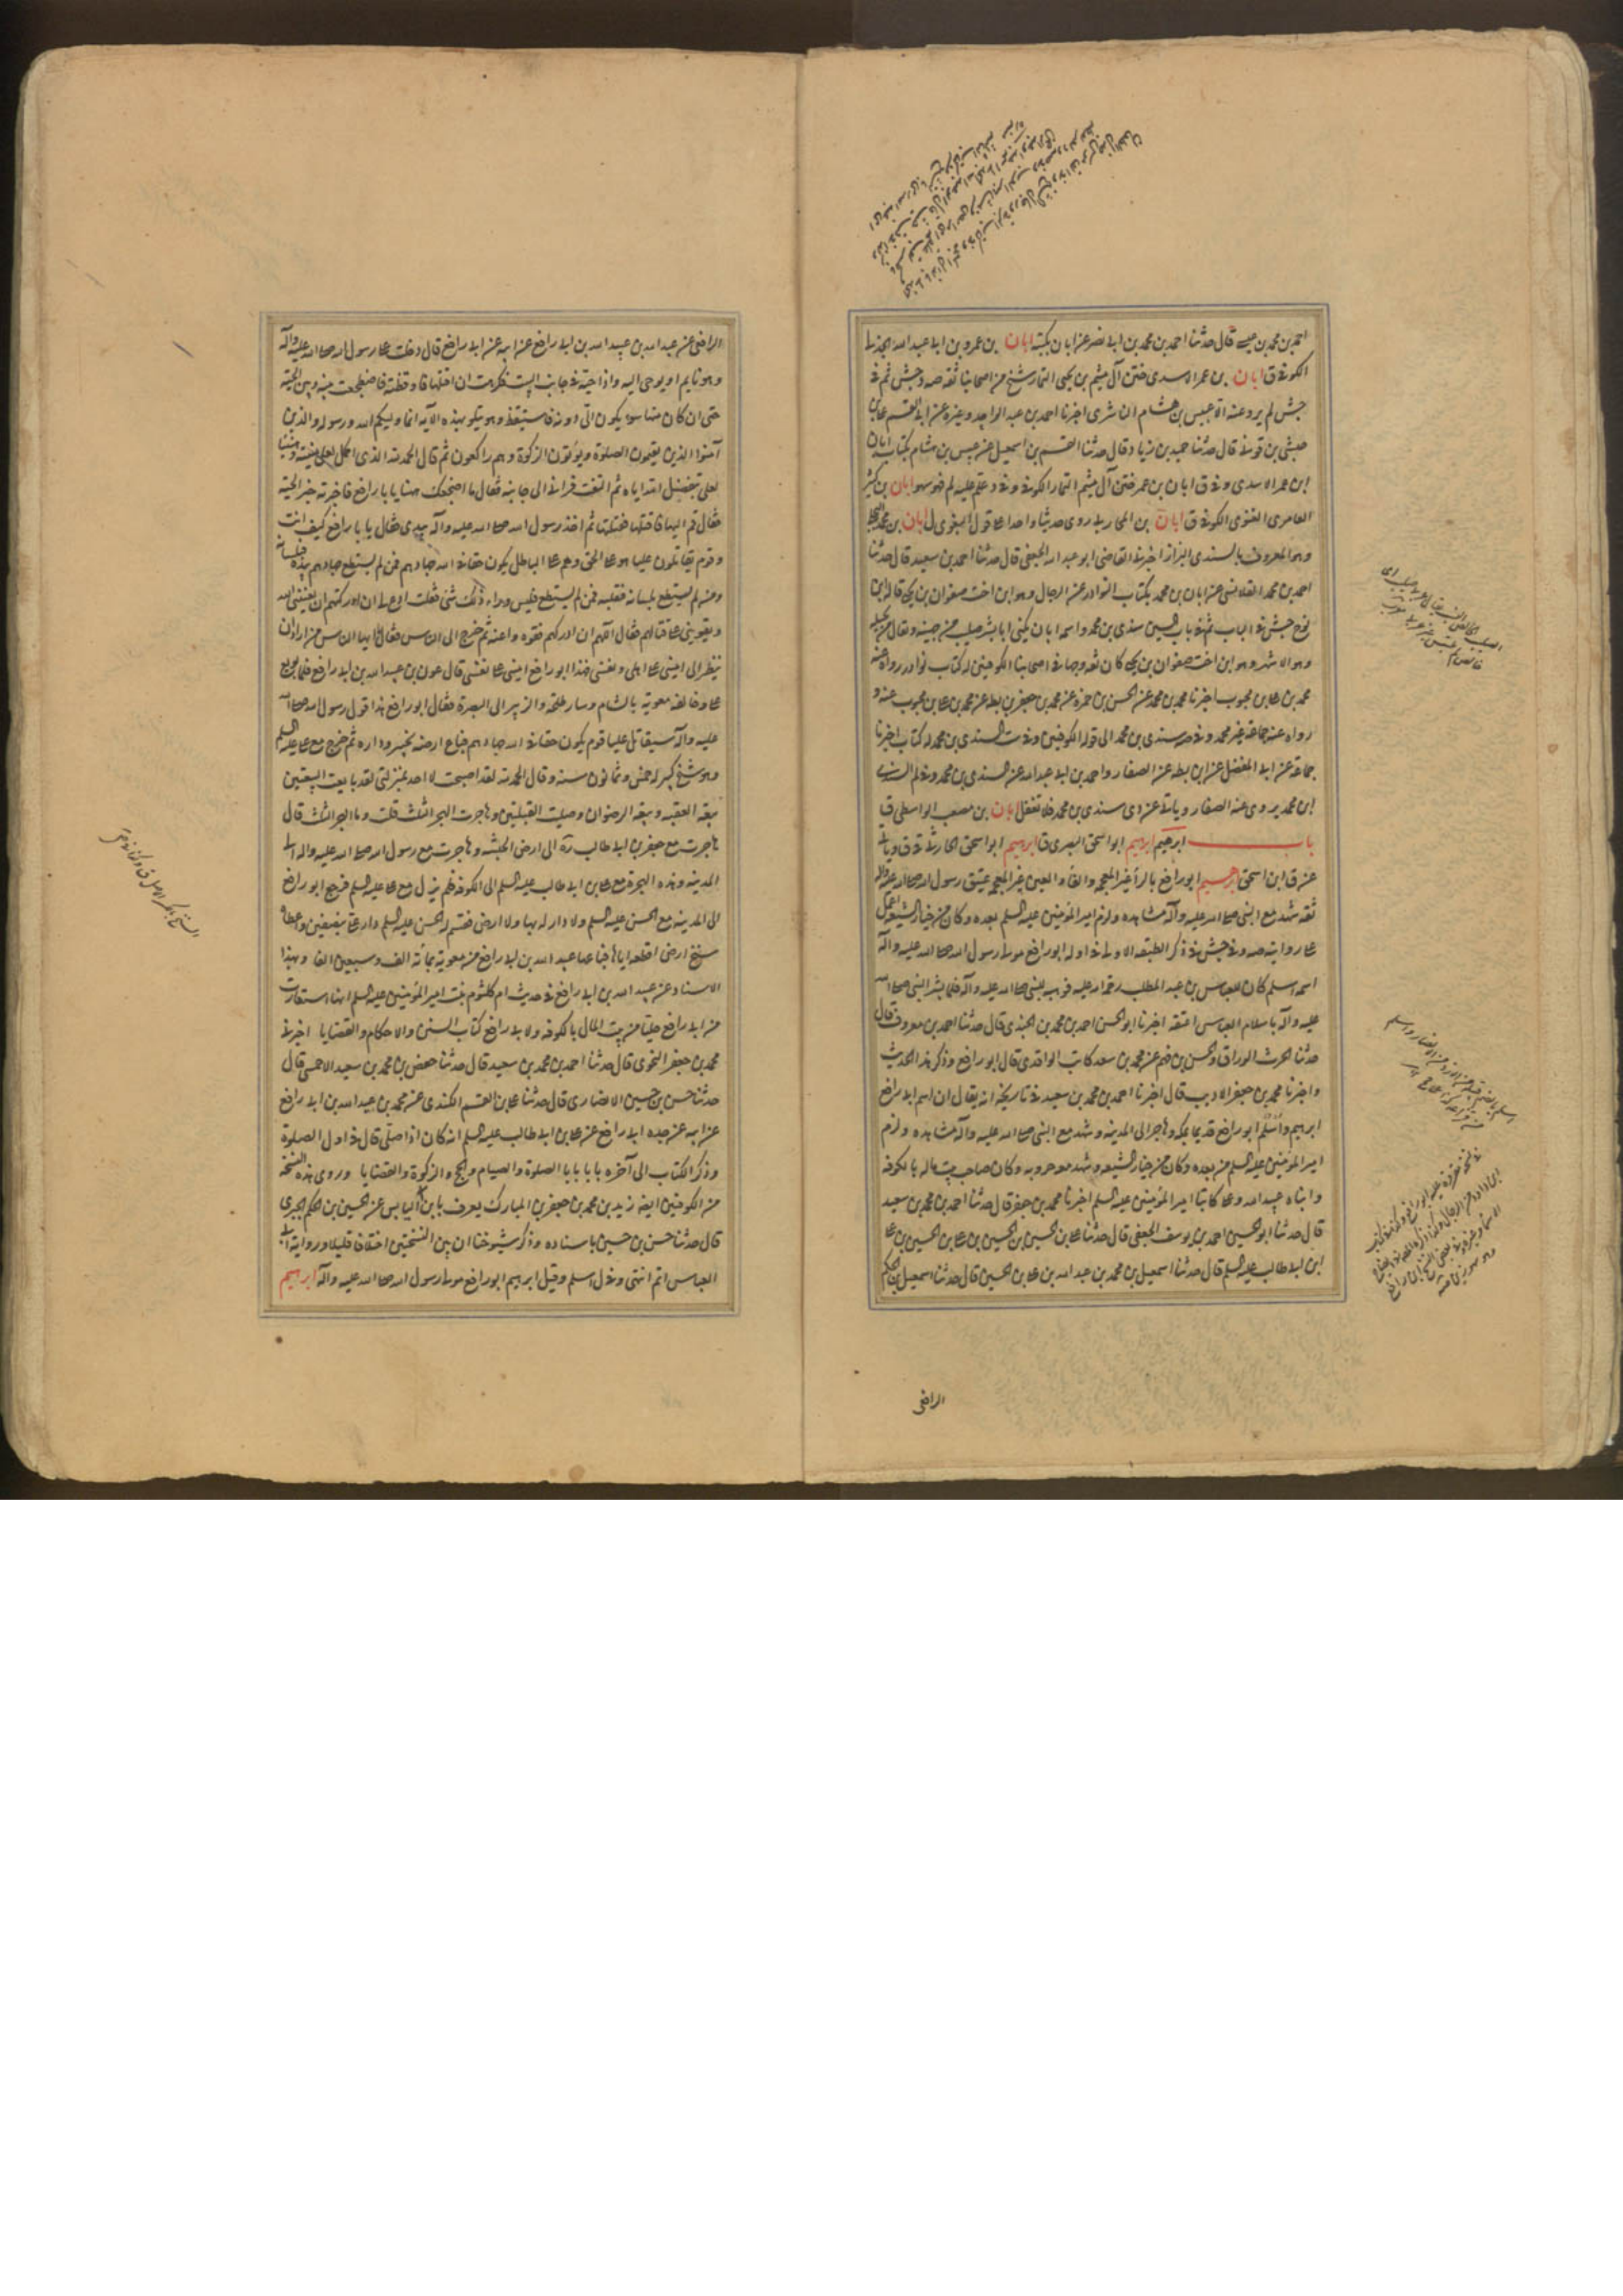 احمد بن محمد بن عيسى قال حدثنا احمد بن محمد بن ابى نصر عن ابان بكتبه ابان بن عمرو بن ابى عبد الله الجذلى
الكوفى ق ابان بن عمر الاسدى ختن آل ميثم بن يحيى التمار شيخ من اصحابنا ثقه صه وجش ثم فى
جش لم يرو عنه الا عبيس بن هشام الناشرى اخبرنا احمد بن عبد الواحد وغيره عن ابى القسم على بن
حبشى بن قونى قال حدثنا حميد بن زياد وقال حدثنا القسم بن اسمعيل عن عبيس بن هشام بكتاب ابان
ابن عمر الاسدى وفى ق ابان بن عمر ختن آل ميثم التمار الكوفى وفى د علم عليه لم فهو سهو ابان بن كثير
العامرى الغنوى الكوفى ق ابان بن المحاربى روى حديثا واحدا على قول البغوى ل ابان بن محمد البجلى
وهو المعروف بالسندى البزاز اخبرنى القاضى ابو عبد الله الجعفى قال حدثنا احمد بن سعيد قال حدثنا
احمد بن محمد القلانسى عن ابان بن محمد بكتاب النوادر عن الرجال وهو ابن اخت صفوان بن يحيى قاله ابن
نوح جش فى الباب ثم فى باب السين سندى بن محمد واسمه ابان يكنى ابا بشر صليب من جهينه ويقال من بجيله
وهو الاشهر وهو ابن اخت صفوان بن يحيى كان ثقه وجها فى اصحابنا الكوفيين له كتاب نوادر رواه عنه
محمد بن على بن محبوب اخبرنا محمد بن محمد عن الحسن بن حمزه عن محمد بن جعفر بن بطه عن محمد بن على بن محبوب عنه و
رواه عنه جماعة غير محمد وفى صه سندى بن محمد الى قوله الكوفيين وفى ست السندى بن محمد له كتاب اخبرنا
جماعة عن ابى المفضل عن ابن بطه عن الصفار واحمد بن ابى عبد الله عن السندى بن محمد وفى لم السندى
ابن محمد يروى عنه الصفار وياتى عن دى سندى بن محمد فلا تغفل ابان بن مصعب الواسطى ق
باب ابرهيم ابرهيم ابو اسحق البصرى ق ابرهيم ابو اسحق الحارثى ق وياتى
عن ق ابن اسحق ابرهيم ابو رافع بالراء غير المعجمه والفاء والعين غير المعجمه عتيق رسول الله صلى الله عليه واله
ثقه شهد مع النبى صلى الله عليه واله مشاهده ولزم امير المؤمنين عليه السلم بعده وكان من خيار الشيعه اعمل
على روايته صه وفى جش فى ذكر الطبقه الاولى فى اوله ابو رافع مولى رسول الله صلى الله عليه واله
اسمه اسلم كان للعباس بن عبد المطلب رحمة الله عليه فوهبه للنبى صلى الله عليه واله فلما بشر النبى صلى الله
عليه واله باسلام العباس اعتقه اخبرنا ابو الحسن احمد بن محمد بن الجندى قال حدثنا احمد بن معروف قال
حدثنا الحرث الوراق والحسن بن فهم عن محمد بن سعد كاتب الواقدى قال ابو رافع وذكر هذا الحديث
واخبرنا محمد بن جعفر الاديب قال اخبرنا احمد بن محمد بن سعيد فى تاريخه انه يقال ان اسم ابى رافع
ابرهيم واسلم ابو رافع قديما بمكه وهاجر الى المدينه وشهد مع النبى صلى الله عليه واله مشاهده ولزم
امير المؤمنين عليه السلم من بعده وكان من خيار الشيعه وشهد معه حروبه وكان صاحب بيت ماله بالكوفه
وابناه عبيد الله وعلى كاتبا امير المؤمنين عليه السلم اخبرنا محمد بن جعفر قال حدثنا احمد بن محمد بن سعيد
قال حدثنا ابو الحسين احمد بن يوسف الجعفى قال حدثنا على بن الحسين بن الحسين بن على بن الحسين بن على
ابن ابى طالب عليه السلم قال حدثنا اسمعيل بن محمد بن عبد الله بن على بن الحسين قال حدثنا اسمعيل بن الحكم
الرافعى
الرافعى عن عبد الله بن عبيد الله بن ابى رافع عن ابيه عن ابى رافع قال دخلت على رسول الله صلى الله عليه واله
وهو نايم او يوحى اليه واذا حية فى جانب البيت فكرهت ان اقتلها فاوقظه فاضطجعت بينه وبين الحية
حتى ان كان منها سوء يكون الى دونه فاستيقظ وهو يتلو هذه الآية انما وليكم الله ورسوله والذين
آمنوا الذين يقيمون الصلوة ويؤتون الزكوة وهم راكعون ثم قال الحمد لله الذى اكمل لعلى منيته وهنيئا
لعلى بتفضيل الله اياه ثم التفت فرانى الى جانبه فقال ما اضجعك هنا يا با رافع فاخبرته خبر الحية
فقال قم اليها فاقتلها فقتلتها ثم اخذ رسول الله صلى الله عليه واله بيدى فقال يا با رافع كيف انت
وقوم يقاتلون عليا هو على الحق وهم على الباطل يكون حقا فى الله جهادهم فمن لم يستطع جهادهم بيده فبلسانه
ومن لم يستطع بلسانه فقلبه فمن لم يستطع فليس وراء ذلك شئ فقلت ادع لى ان ادركتهم ان يعيننى الله
ويقوينى على قتالهم فقال اللهم ان ادركهم فقوه واعنه ثم خرج الى الناس فقال يا ايها الناس من اراد ان
ينظر الى امينى على اهلى ونفسى فهذا ابو رافع امينى على نفسى قال عون بن عبيد الله بن ابى رافع فلما بويع
على وخالفه معويه بالشام وسار طلحه والزبير الى البصرة فقال ابو رافع هذا قول رسول الله صلى الله
عليه واله سيقاتل عليا قوم يكون حقا فى الله جهادهم فباع ارضه بخيبر وداره ثم خرج مع على عليه السلم
وهو شيخ كبير له خمس وثمانون سنه وقال الحمد لله لقد اصبحت لا احد بمنزلتى لقد بايعت البيعتين
بيعه العقبه وبيعه الرضوان وصليت القبلتين وهاجرت الهجر الثلث قلت وما الهجر الثلث قال
هاجرت مع جعفر بن ابى طالب ره الى ارض الحبشه وهاجرت مع رسول الله صلى الله عليه واله الى
المدينه وهذه الهجرة مع على بن ابى طالب عليه السلم الى الكوفه فلم يزل مع على عليه السلم فرجع ابو رافع
الى المدينه مع الحسن عليه السلم ولا دار له بها ولا ارض فقسم له الحسن عليه السلم دار على بنصفين واعطاه
سنخ ارض اقطعه اياها فباعها عبيد الله بن ابى رافع من معويه بمائه الف وسبعين الفا وبهذا
الاسناد عن عبيد الله بن ابى رافع فى حديث ام كلثوم بنت امير المؤمنين عليه السلم انها استعارت
من ابى رافع حليا من بيت المال بالكوفه ولابى رافع كتاب السنن والاحكام والقضايا اخبرنا
محمد بن جعفر النحوى قال حدثنا احمد بن محمد بن سعيد قال حدثنا حفص بن محمد بن سعيد الاحمسى قال
حدثنا حسن بن حسين الانصارى قال حدثنا على بن القسم الكندى عن محمد بن عبيد الله بن ابى رافع
عن ابيه عن جده ابى رافع عن على بن ابى طالب عليه السلم انه كان اذا صلى قال فى اول الصلوة
وذكر الكتاب الى آخره بابا بابا الصلوة والصيام والحج والزكوة والقضايا وروى هذه النسخة
من الكوفيين ايضا زيد بن محمد بن جعفر بن المبارك يعرف بابن ابى الياس عن الحسين بن الحكم الحبرى
قال حدثنا حسن بن حسين باسناده وذكر شيوخنا ان بين النسختين اختلافا قليلا ورواية ابى
العباس اتم انتهى وفى ل اسلم وقيل ابرهيم ابو رافع مولى رسول الله صلى الله عليه واله ابرهيم